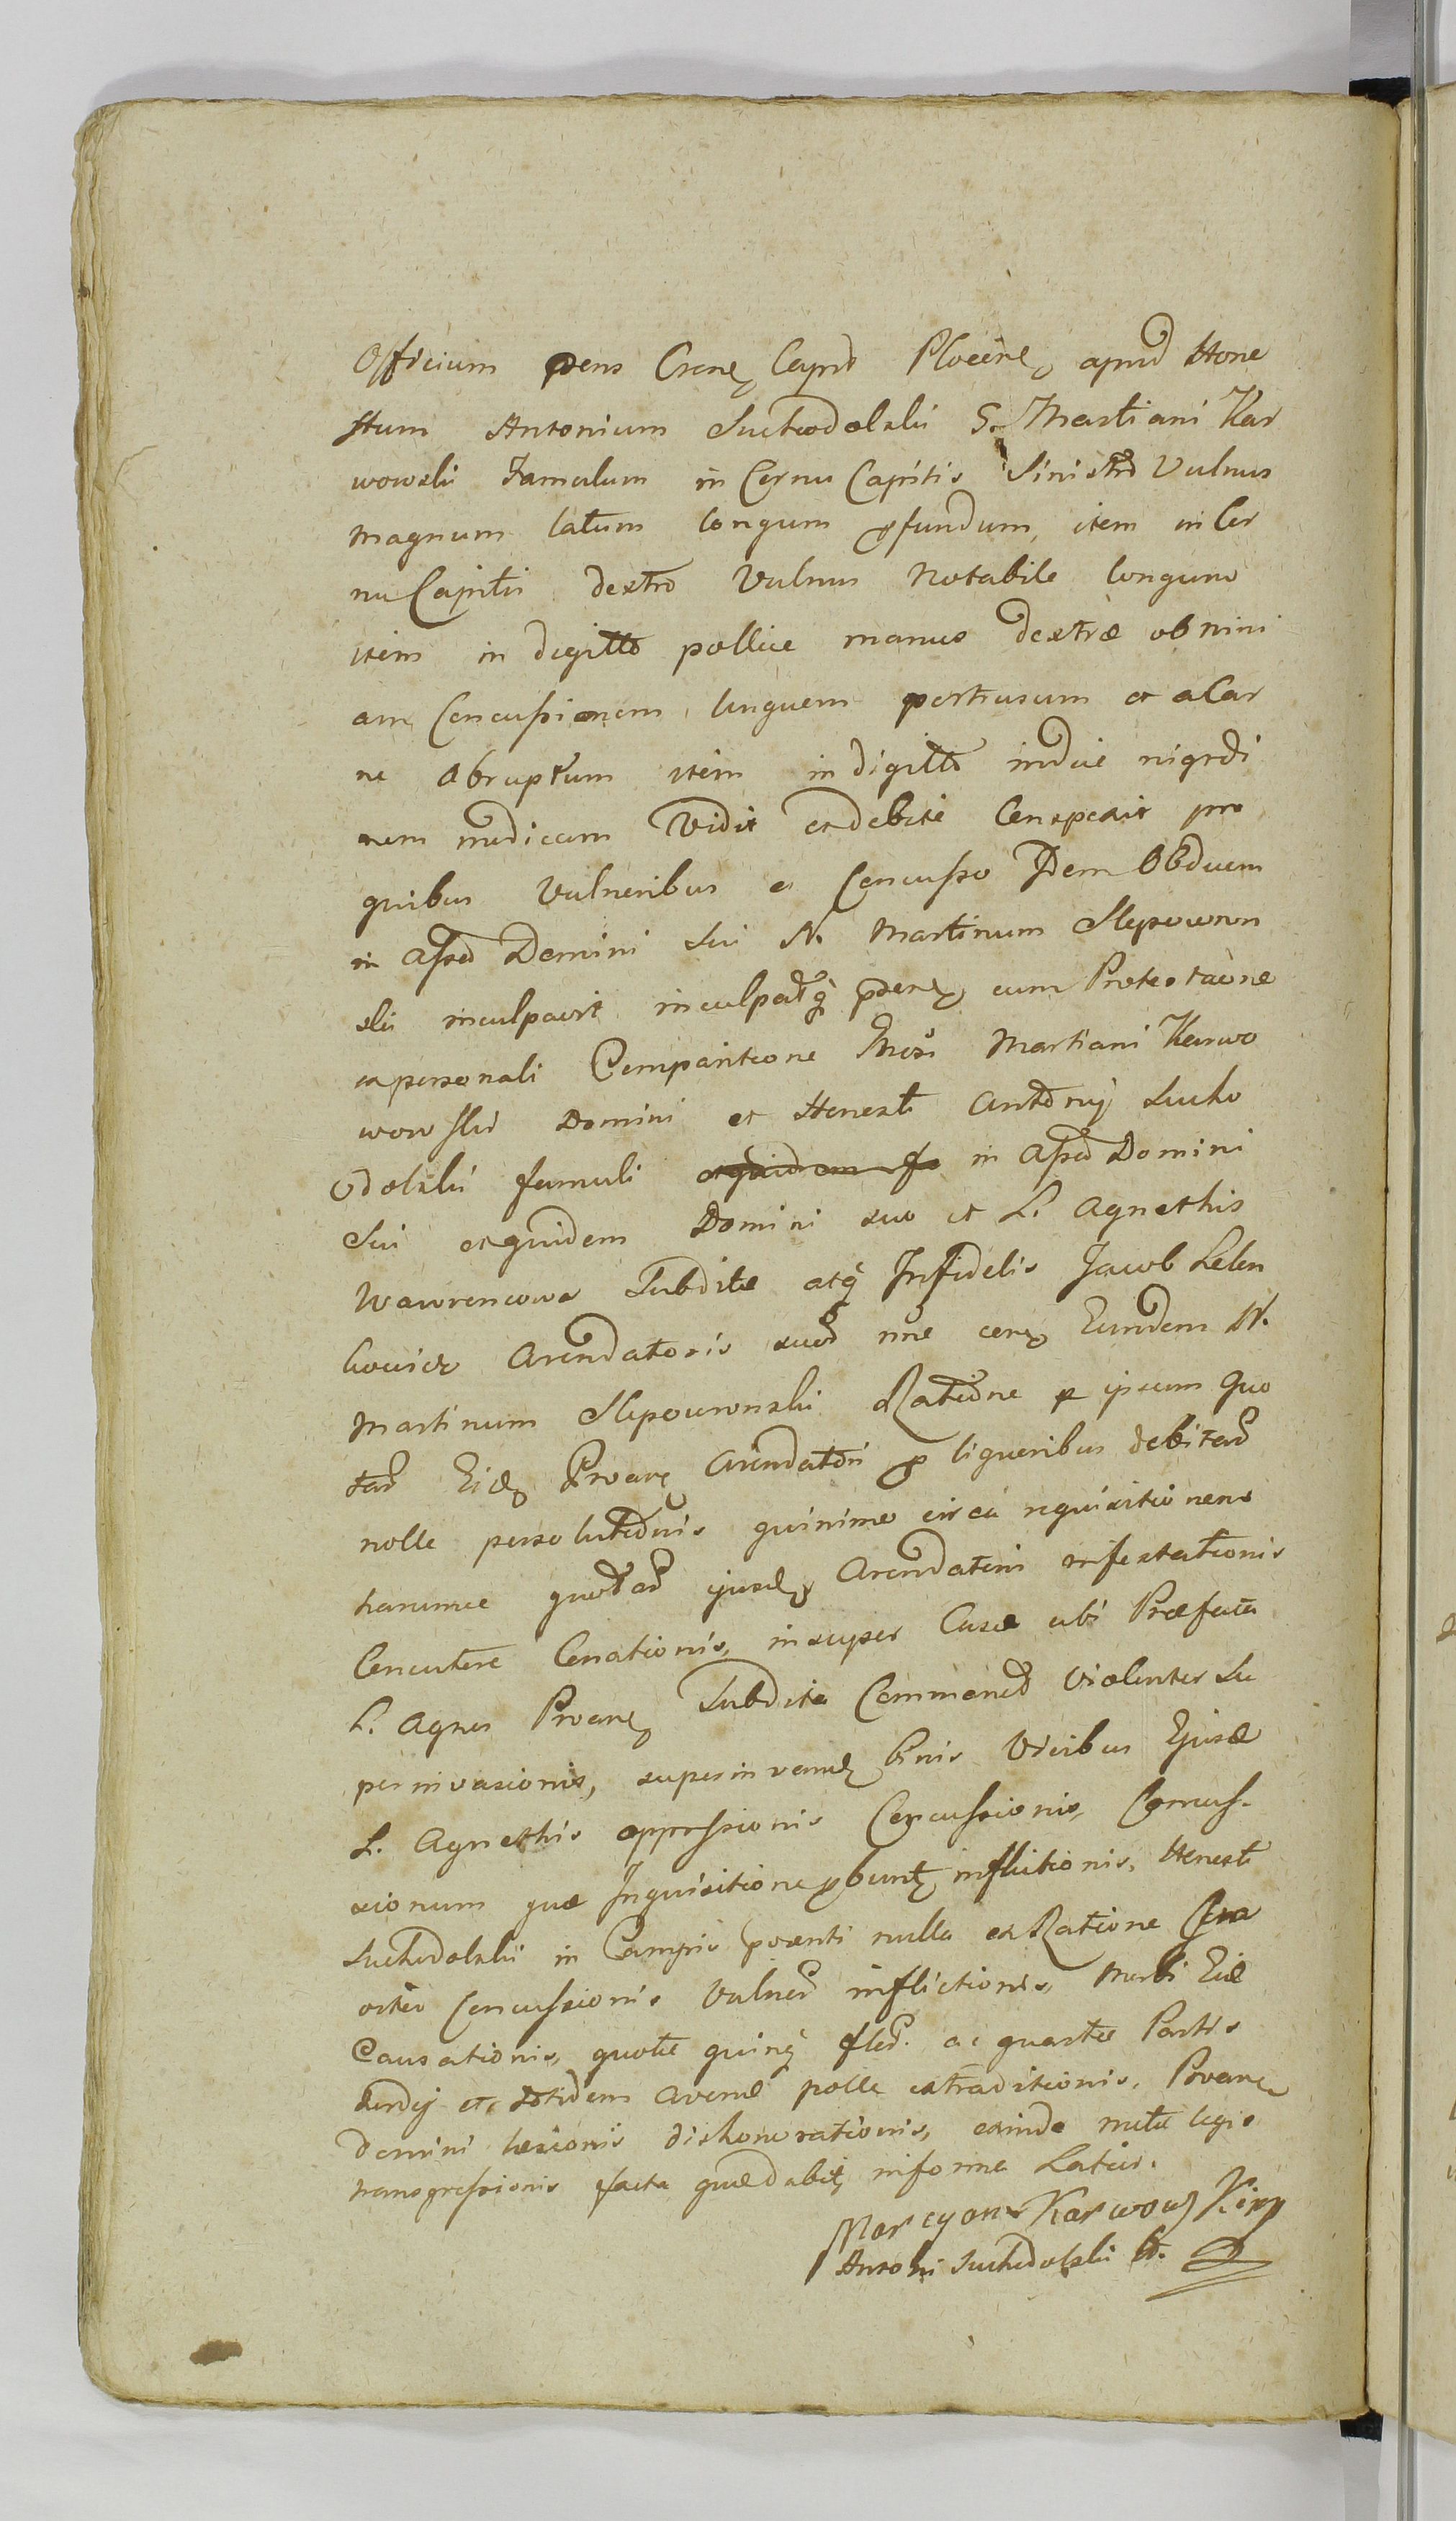 Officium pens Crene Ceynd Plocene apud Hone
stum Antonium Suchodolski G. Martiani Kar
wowski Famulum in Cornu Capitis Sinistro Vulnus
magnum latum longum pfundum, item in Cor
nu Capitis dextro Vulnus Notabile longum
item in digitto pollice manus dextræ ob nimi
am Concussionem unguem pertrusum et a Car
ne Abruptum item in digitto indice nigredi
nem modicam Vidit et debite Conspexit pro
quibus Vulneribus et Concusso Idem Obducm
in Assa Domini Sui N. Martinum Slepowron
ski inculpavit inculpatq cum Protestaone
ex personali Comparitione Martiani Karwo
wowski Domini et Honesti Antonij Sucho
odolski famuli in Assa Domini
Sui et quidem Domini suo et L. Agnethis
Wawrencowa Subditæ atq Infidelis Jacob Lelen
kowicz Arendatoris suo nne Eundem N.
Martinum Slepowronski Ratione p ipsum Quo
tas Eid Arendatori p liquoribus debitas
nolle persolutionis quinimo circa requisitionem
harumce quotas ejusd Arendatori infestationis
Concutere Conationis, insuper Casæ ubi Præfata
L. Agnes Subdita Commoned Violenter Su
per invasionis, super invent binis Vicibus Ejusd
L. Agnethis oppressionis Concussionis, Concus-
sionum quæ Inquisitione pbunt inflictionis, Honesti
Suchodolski in Campis nulla ex Ratione
Concussionis Vulner inflictionis, Morbi Eid
Causationis, quotæ quinq flor. ac quartæ Partis
et totidem Avenæ nolle extraditionis,
domini læsionis dishonorationis, exinde metæ legis
transgressionis facta quæ dabit in forma Latius.
Marcyan Karwowski
Antoni Suchodolski